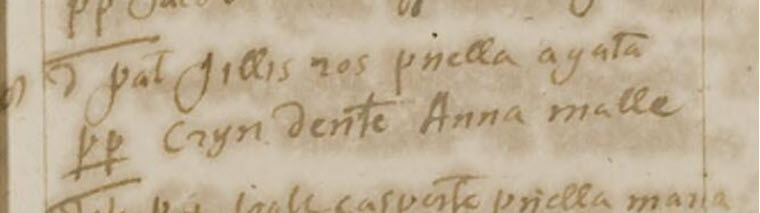 pp Jaco
D pat Jillis ros puella agata
pp Cryn dente Anna malle
casperte puella maria